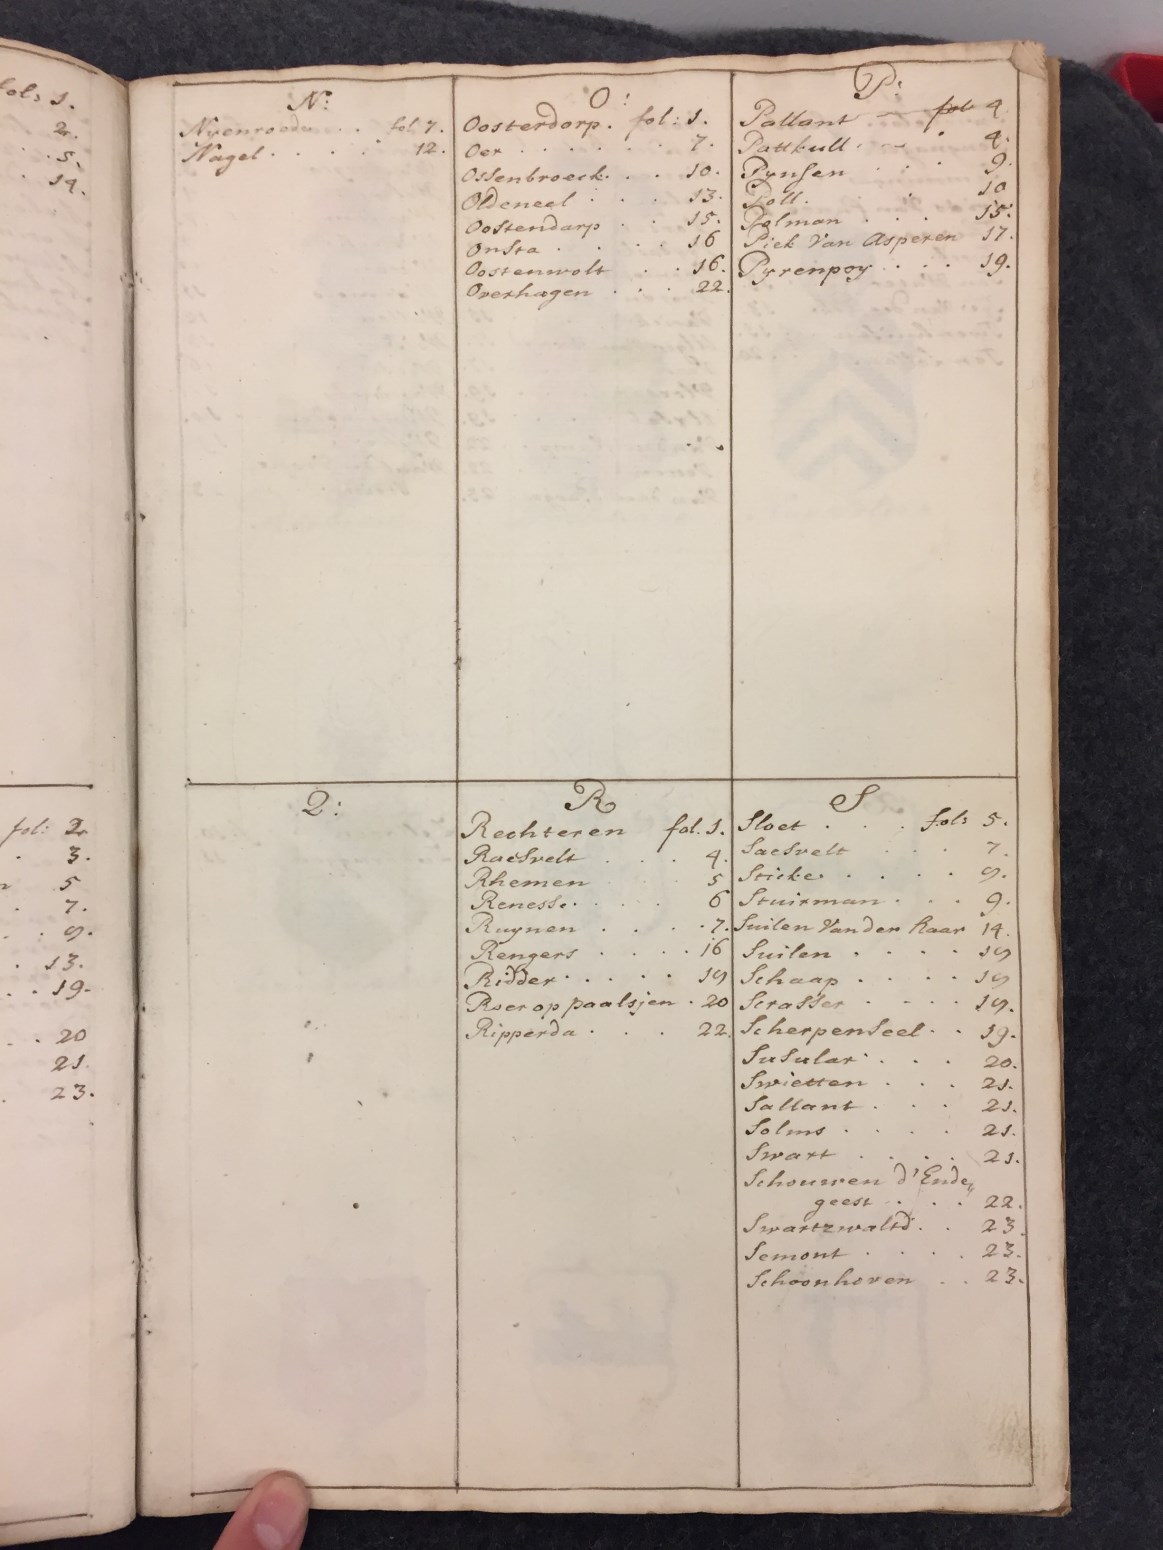 fol: 1.
2.
5.
14.
fol: 2.
3.
5
7.
9.
13.
19.
20
21.
23.
N:
Nyenroede . . fol 7.
Nagel . . . . 12.
O:
Oosterdorp. fol: 1.
Oer . . . . . . 7.
Ossenbroeck. . . 10.
Oldeneel . . . 13.
Oostendarp . . 15.
Onsta . . . . 16
Oostenwolt . . 16.
Overhagen . . . 22.
P:
Pallant — fol 4.
Pattkull . . . 4.
Pynsen . . . 9.
Poll. . . . 10
Polman . . . 15.
Piek Van Asperen 17.
Pyrenpoy . . . 19.
Q:
R
Rechteren fol. 1.
Raesvelt . . . 4.
Rhemen . . . 5
Renesse. . . . 6
Ruynen . . . . 7.
Rengers . . . . 16
Ridder . . . . 19
Roer op paalsjen . 20
Ripperda . . . 22.
S
Sloet . . . fol: 5.
Saesvelt . . . 7.
Sticke . . . . 9.
Stuirman . . . 9.
Suilen Van der Haar 14.
Suilen . . . . 19
Schaap . . . . 19
Scrasser . . . . 19.
Scherpenseel . . 19.
Susular . . . 20.
Swietten . . . 21.
Sallant . . . 21.
Solms . . . . 21.
Swart . . . . 21.
Schouwen d'Ende„
geest . . . 22.
Swartzwaltd . . 23.
Semont . . . . 23.
Schoonhoven . . 23.